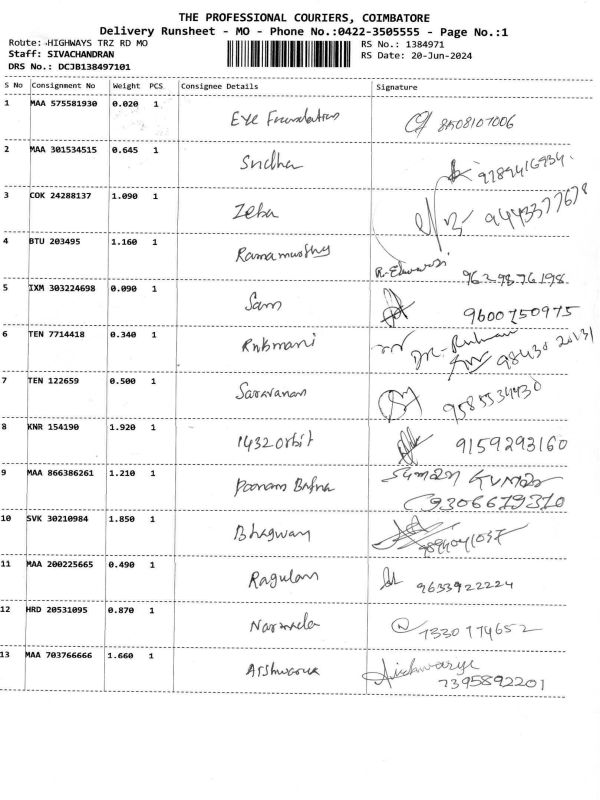 THE PROFESSIONAL COURIERS, COIMBATORE
Delivery Runsheet - MO - Phone No.:0422-3505555 - Page No.:1
Route: HIGHWAYS TRZ RD MO
RS No.: 1384971
Staff: SIVACHANDRAN
RS Date: 20-Jun-2024
DRS No.: DCJB138497101
S No Consignment No Weight PCS Consignee Details Signature
1 MAA 575581930 0.020 1 Eye Foundation 8508107006
2 MAA 301534515 0.645 1 Sudha 9789416934
3 COK 24288137 1.090 1 Zeba 9443377678
4 BTU 203495 1.160 1 Ramamurthy 9629876198
5 IXM 303224698 0.090 1 Sam 9600750975
6 TEN 7714418 0.340 1 Rukmani 98430 20131
7 TEN 122659 0.500 1 Saravanan 9585534430
8 KNR 154190 1.920 1 1432 orbit 9159293160
9 MAA 866386261 1.210 1 Poonam Bafna Suman Kumar
9306619310
10 SVK 30210984 1.850 1 Bhagwan
11 MAA 200225665 0.490 1 Ragulan 9633922224
12 HRD 20531095 0.870 1 Narmela 7330174652
13 MAA 703766666 1.660 1 Aishwarya Aishwarya
7395892201